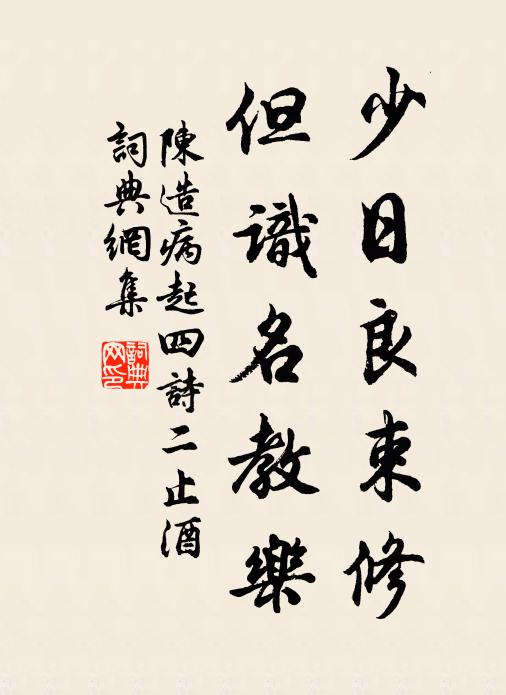 少日良束修
但識名教樂
陳造病起四詩二止酒
詞典網集
詞典
网印